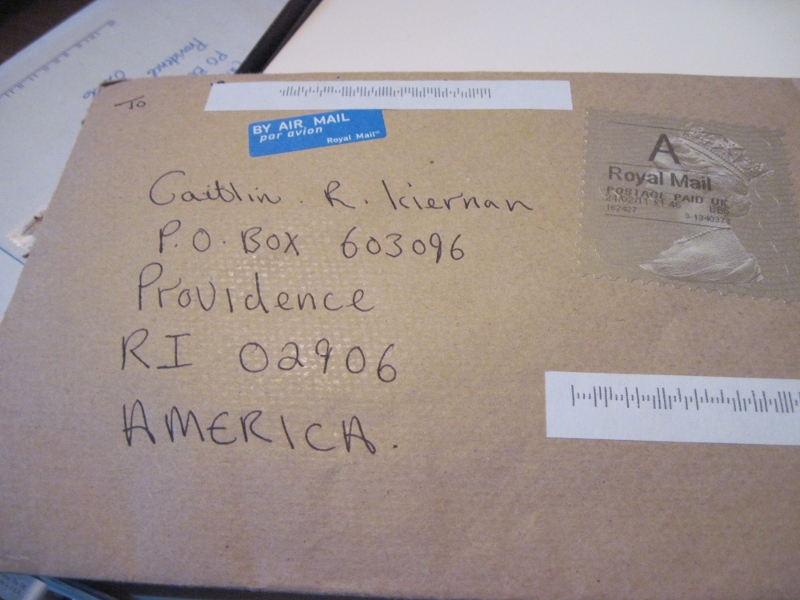 To
BY AIR MAIL
par avion
Royal Mail®
A
Royal Mail
POSTAGE PAID UK
Caitlin. R. Kiernan
P.O. BOX 603096
Providence
RI 02906
AMERICA.
PO
Providence